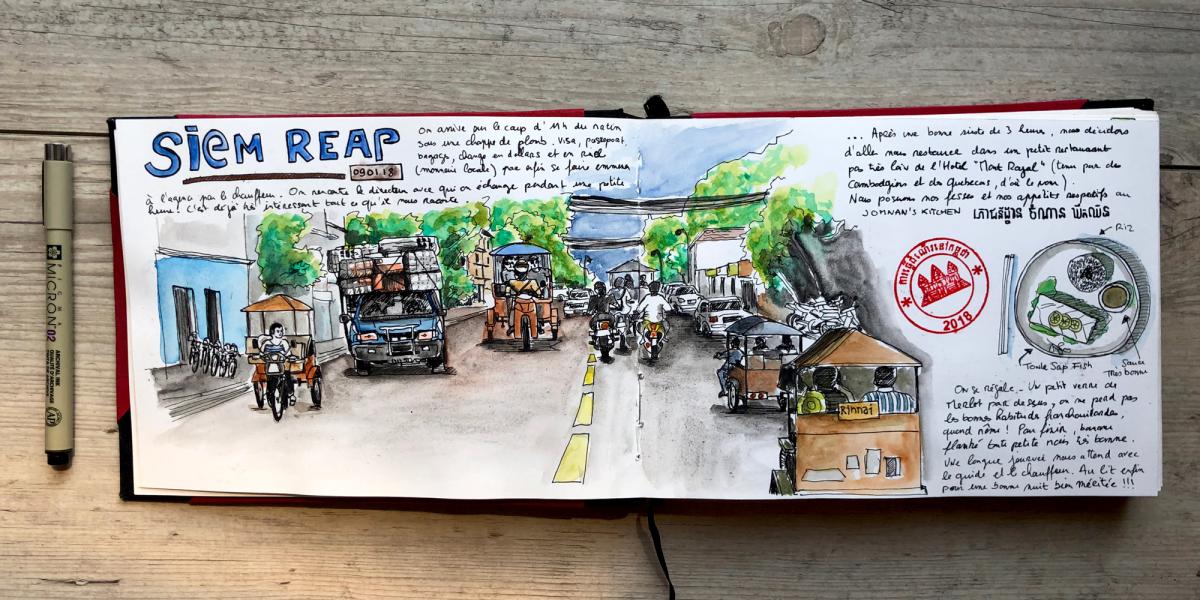 SIEM REAP
09.01.18
On arrive sur le coup d'11h du matin
sous une chappe de plomb. Visa, passeport,
bagages, change en dollars et en Riell
(monnaie locale) puis afin se faire emmener
à l'agence par le chauffeur. On rencontre le directeur avec qui on échange pendant une petite
heure. C'est déjà très intéressant tout ce qu'il nous raconte
... Après une bonne sieste de 3 heures, nous décidons
d'aller nous restaurer dans un petit restaurant
pas très loin de l'Hotel "Mont Royal" (tenu par des
Cambodgiens et des Quebecois, d'où le nom).
Nous posons nos fesses et nos appétits respectifs au
JOMNAN'S KITCHEN
Riz
2018
Tonle Sap Fish
Sauce
Très bonne
On se régale. Un petit verre de
Merlot par dessus, on ne perd pas
les bonnes habitudes franchouillardes,
quand même ! Pour finir, banane
flambée toute petite mais très bonne.
Une longue journée nous attend avec
le guide et le chauffeur. Au lit enfin
pour une bonne nuit bien méritée !!!
Rinnai
MICRON
ARCHIVAL INK